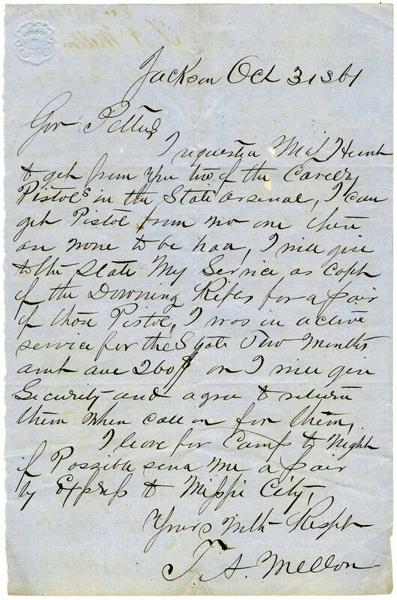 Jackson Oct 31st 61
Gov Pettus
I requested Maj Hunt
to get from you two of the Cavalry
Pistols in the State Arsenal, I can
get Pistol from no one there
are none to be had, I will give
to the State My Service as Capt
of the Downing Rifles for a pair
of those Pistols, I was in active
service for the State two Months
and
I will give
Security and agree to return
them when call on for them,
I leave for Camp to Night
if Possible send me a pair
by Express to Missipi City,
Yours With Respt
T. A. Mellon